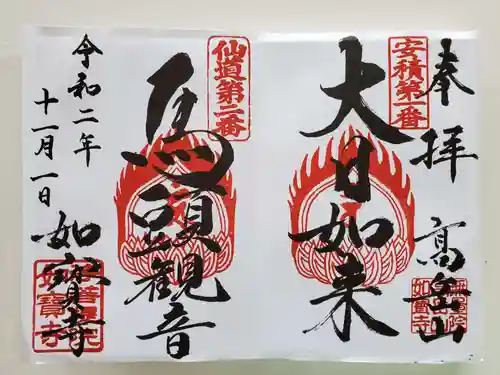 奉拝
高岳山
安積第一番
大日如来
仙道第二番
馬頭観音
令和二年
十一月一日
如寶寺
如寶寺